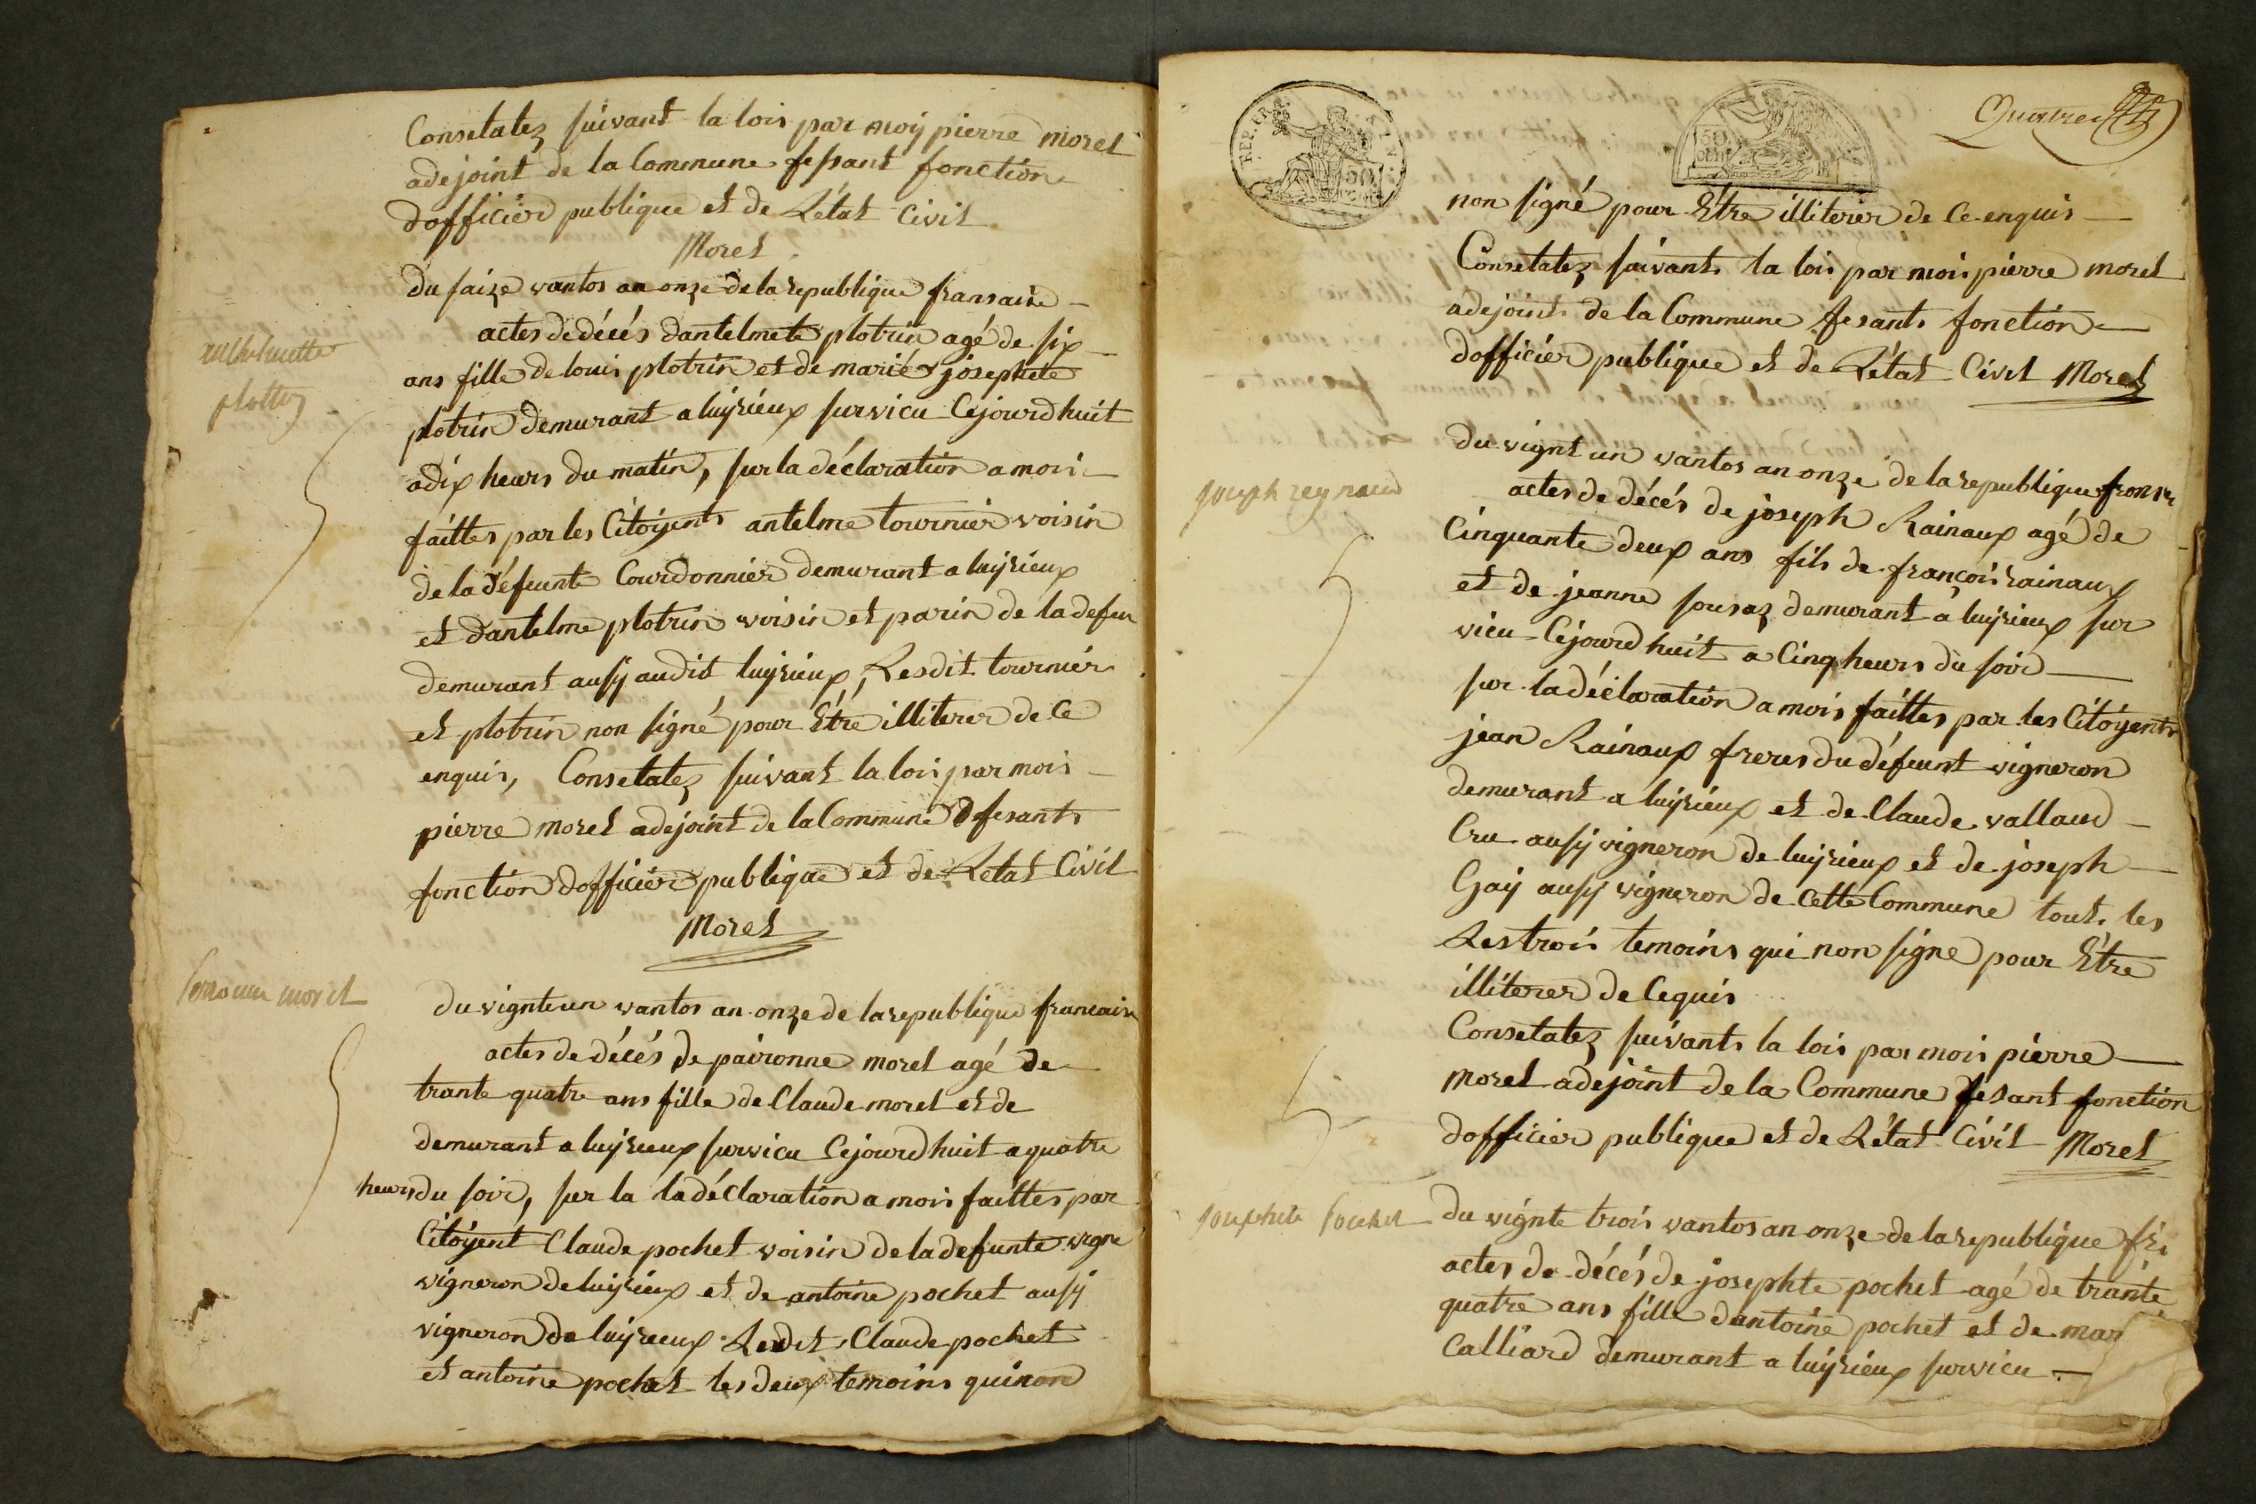 Constatez suivant la lois par moy pierre morel
adejoint de la Commune fesant fonction
dofficier publique et de Létat Civil
Morel
du saize vantos an onze de la republique fransaise
anthelmette
plottin
actes de décés dantelmete plotrin agé de six
ans fille de louis plotrin et de marie josephete
plotrin demurant a luyrieux survieu Cejourdhuit
adix heurs du matin, sur la déclaration a mois
faittes par les Citoyents antelme tournier voisin
de la défeunte Courdonnier demurant a luyrieux
et dantelme plotrin voisin et parin de la defeu
demurant ausy audit luyrieux, Lesdit tournier
et plotrin non signé pour Être illiterer de Ce
enquis, Constatez suivant la lois par mois
pierre morel adejoint de la Commune fesant
fonction dofficier publique et de Letat Civil
Morel
morel
du vignteun vantos an onze de la republique francaise
actes de décés de paironne morel agé de
trante quatre ans fille de Claude morel et de
demurant a luyrieux survieu Cejourdhuit a quatre
heurs du soir, sur la la déclaration a mois faittes par
Citoyent Claude pochet voisin de la defunte vigne
vigneron de luyrieux et de antoine pochet ausy
vigneron de luyrieux Ledit Claude pochet
et antoine pochet les deux temoins qui non
REP. FRA.
50
50
CEN
Quatre
non signé pour Être illiterer de Ce enquis
Constatez suivant la lois par mois pierre morel
adejoint de la Commune fesant fonction
dofficier publique et de Létat Civil Morel
du vignt un vantos an onze de la republique fransa
joseph reynaud
actes de décés de joseph Rainaux agé de
Cinquante deux ans fils de françois rainaux
et de jeanne sousaz demurant a luyrieux sur
vieu Cejourdhuit a Cinq heurs du soir
sur la déclaration a mois faittes par les Citoyents
jean Rainaux freres du défeunt vigneron
demurant a luyrieux et de Claude vallaud
Cru ausy vigneron de luyrieux et de joseph
Gay ausy vigneron de cette Commune tout les
Les trois temoins qui non signe pour Être
illiterer de Cequis
Constatez suivant la lois par mois pierre
morel adejoint de la Commune fesant fonction
dofficier publique et de Létat Civil Morel
josephete pochet
du vignte trois vantos an onze de la republique fra
actes de décés de josephte pochet agé de trante
quatre ans fille dantoine pochet et de mar
Calliard demurant a luyrieux survieu